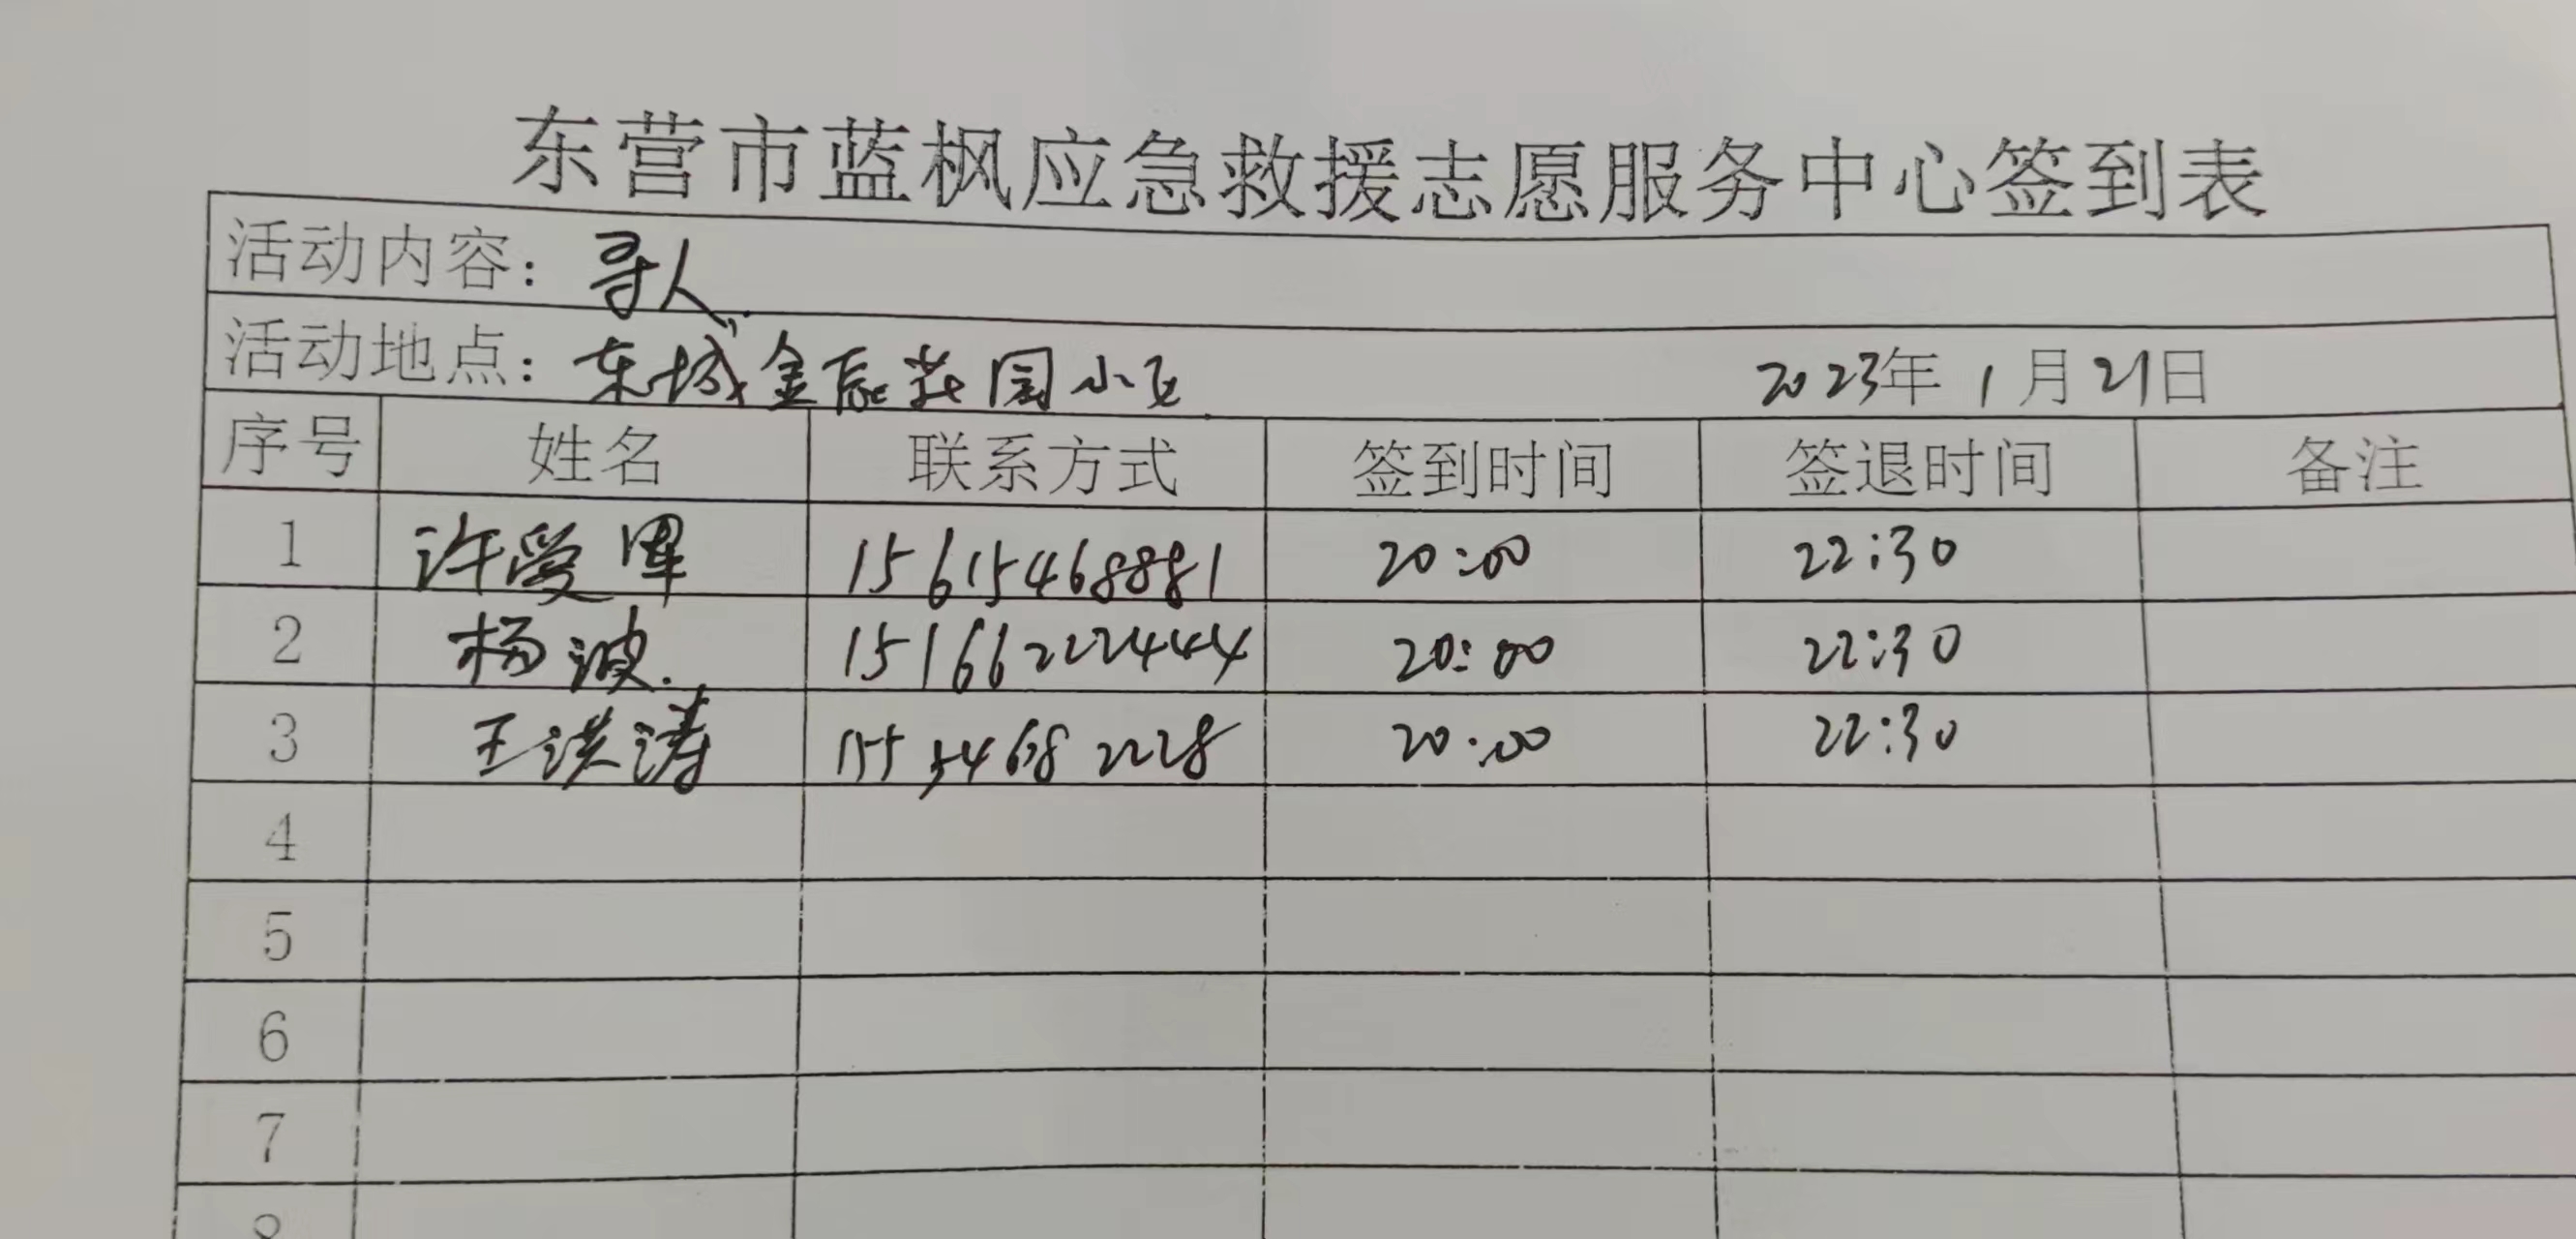 东营市蓝枫应急救援志愿服务中心签到表
活动内容：寻人
活动地点：东城金辰花园小区 2023年1月21日
序号 姓名 联系方式 签到时间 签退时间 备注
1 许爱军 15615468881 20:00 22:30
2 杨波. 15166222444 20:00 22:30
3 王洪涛 15554682228 20:00 22:30
4
5
6
7
8